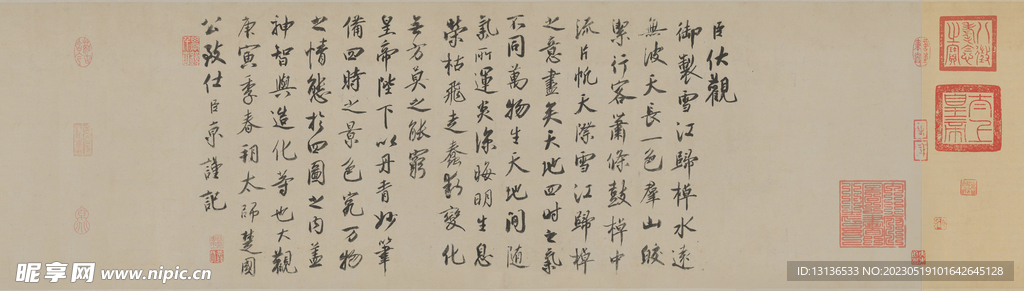 臣伏觀
御製雪江歸棹水遠
無波天長一色群山皎
潔行客蕭條鼓棹中
流片帆天際雪江歸棹
之意盡矣天地四時之氣
不同萬物生天地間隨
氣所運炎涼晦明生息
榮枯飛走蠢動變化
無方莫之能窮
皇帝陛下以丹青妙筆
備四時之景色究萬物
之情態於四圖之內蓋
神智與造化等也大觀
庚寅季春朔太師楚國
公致仕臣京謹記
太上
皇帝
昵享网 www.nipic.cn
ID:13136533 NO:20230519101642645128